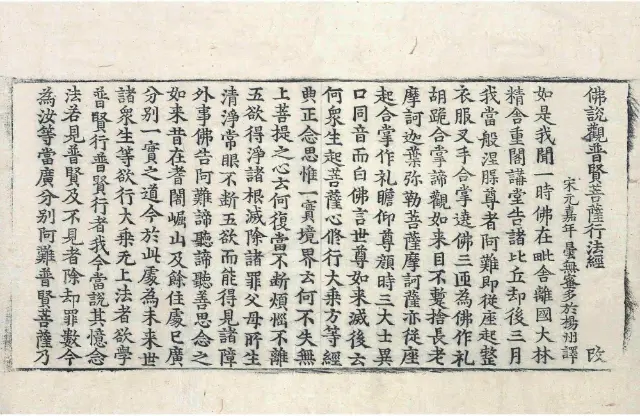 佛說觀普賢菩薩行法經 攺
宋元嘉年曇無蜜多於揚州譯
如是我聞一時佛在毗舍離國大林
精舍重閣講堂告諸比丘却後三月
我當般涅槃尊者阿難即從座起整
衣服叉手合掌遶佛三匝為佛作礼
胡跪合掌諦觀如来目不蹔捨長老
摩訶迦葉弥勒菩薩摩訶薩亦從座
起合掌作礼瞻仰尊顔時三大士異
口同音而白佛言世尊如来滅後云
何衆生起菩薩心修行大乘方等經
典正念思惟一實境界云何不失無
上菩提之心云何復當不断煩惱不離
五欲得淨諸根滅除諸罪父母所生
清淨常眼不断五欲而能得見諸障
外事佛告阿難諦聽諦聽善思念之
如来昔在耆闍崛山及餘住處已廣
分别一實之道今於此處為未来世
諸衆生等欲行大乘无上法者欲學
普賢行普賢行者我今當說其憶念
法若見普賢及不見者除却罪數今
為汝等當廣分别阿難普賢菩薩乃